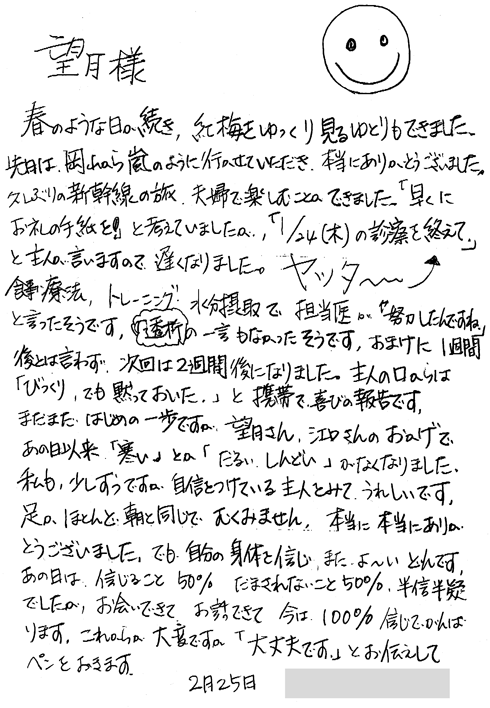 望月様
春のような日が続き、紅梅をゆっくり見るゆとりもできました。
先日は、岡山から嵐のように行かせていただき、本当にありがとうございました。
久しぶりの新幹線の旅、夫婦で楽しむことができました。「早くに
お礼の手紙を!」と考えていましたが、「1/24(木)の診療を終えて。」
と主人が言いますので、遅くなりました。ヤッタ〜〜
食事療法、トレーニング、水分摂取で、担当医が"努力したんですね"
と言ったそうです。透析の一言もなかったそうです。おまけに1週間
後とは言わず、次回は2週間後になりました。主人の口からは
「びっくり、でも黙っておいた。」と携帯で喜びの報告です。
まだまだ、はじめの一歩ですが、望月さん、江口さんのおかげで、
あの日以来「寒い」とか「だるい、しんどい」がなくなりました。
私も、少しずつですが、自信をつけている主人をみて、うれしいです。
足が、ほとんど朝と同じで、むくみません。本当に本当にありが
とうございました。でも、自分の身体を信じ、また、よ〜いどんです。
あの日は、信じること50% だまされないこと50%、半信半疑
でしたが、お会いできて、お話できて、今は、100%信じてがんば
ります。これからが大変ですが「大丈夫です。」とお伝えして
ペンをおきます。
2月25日